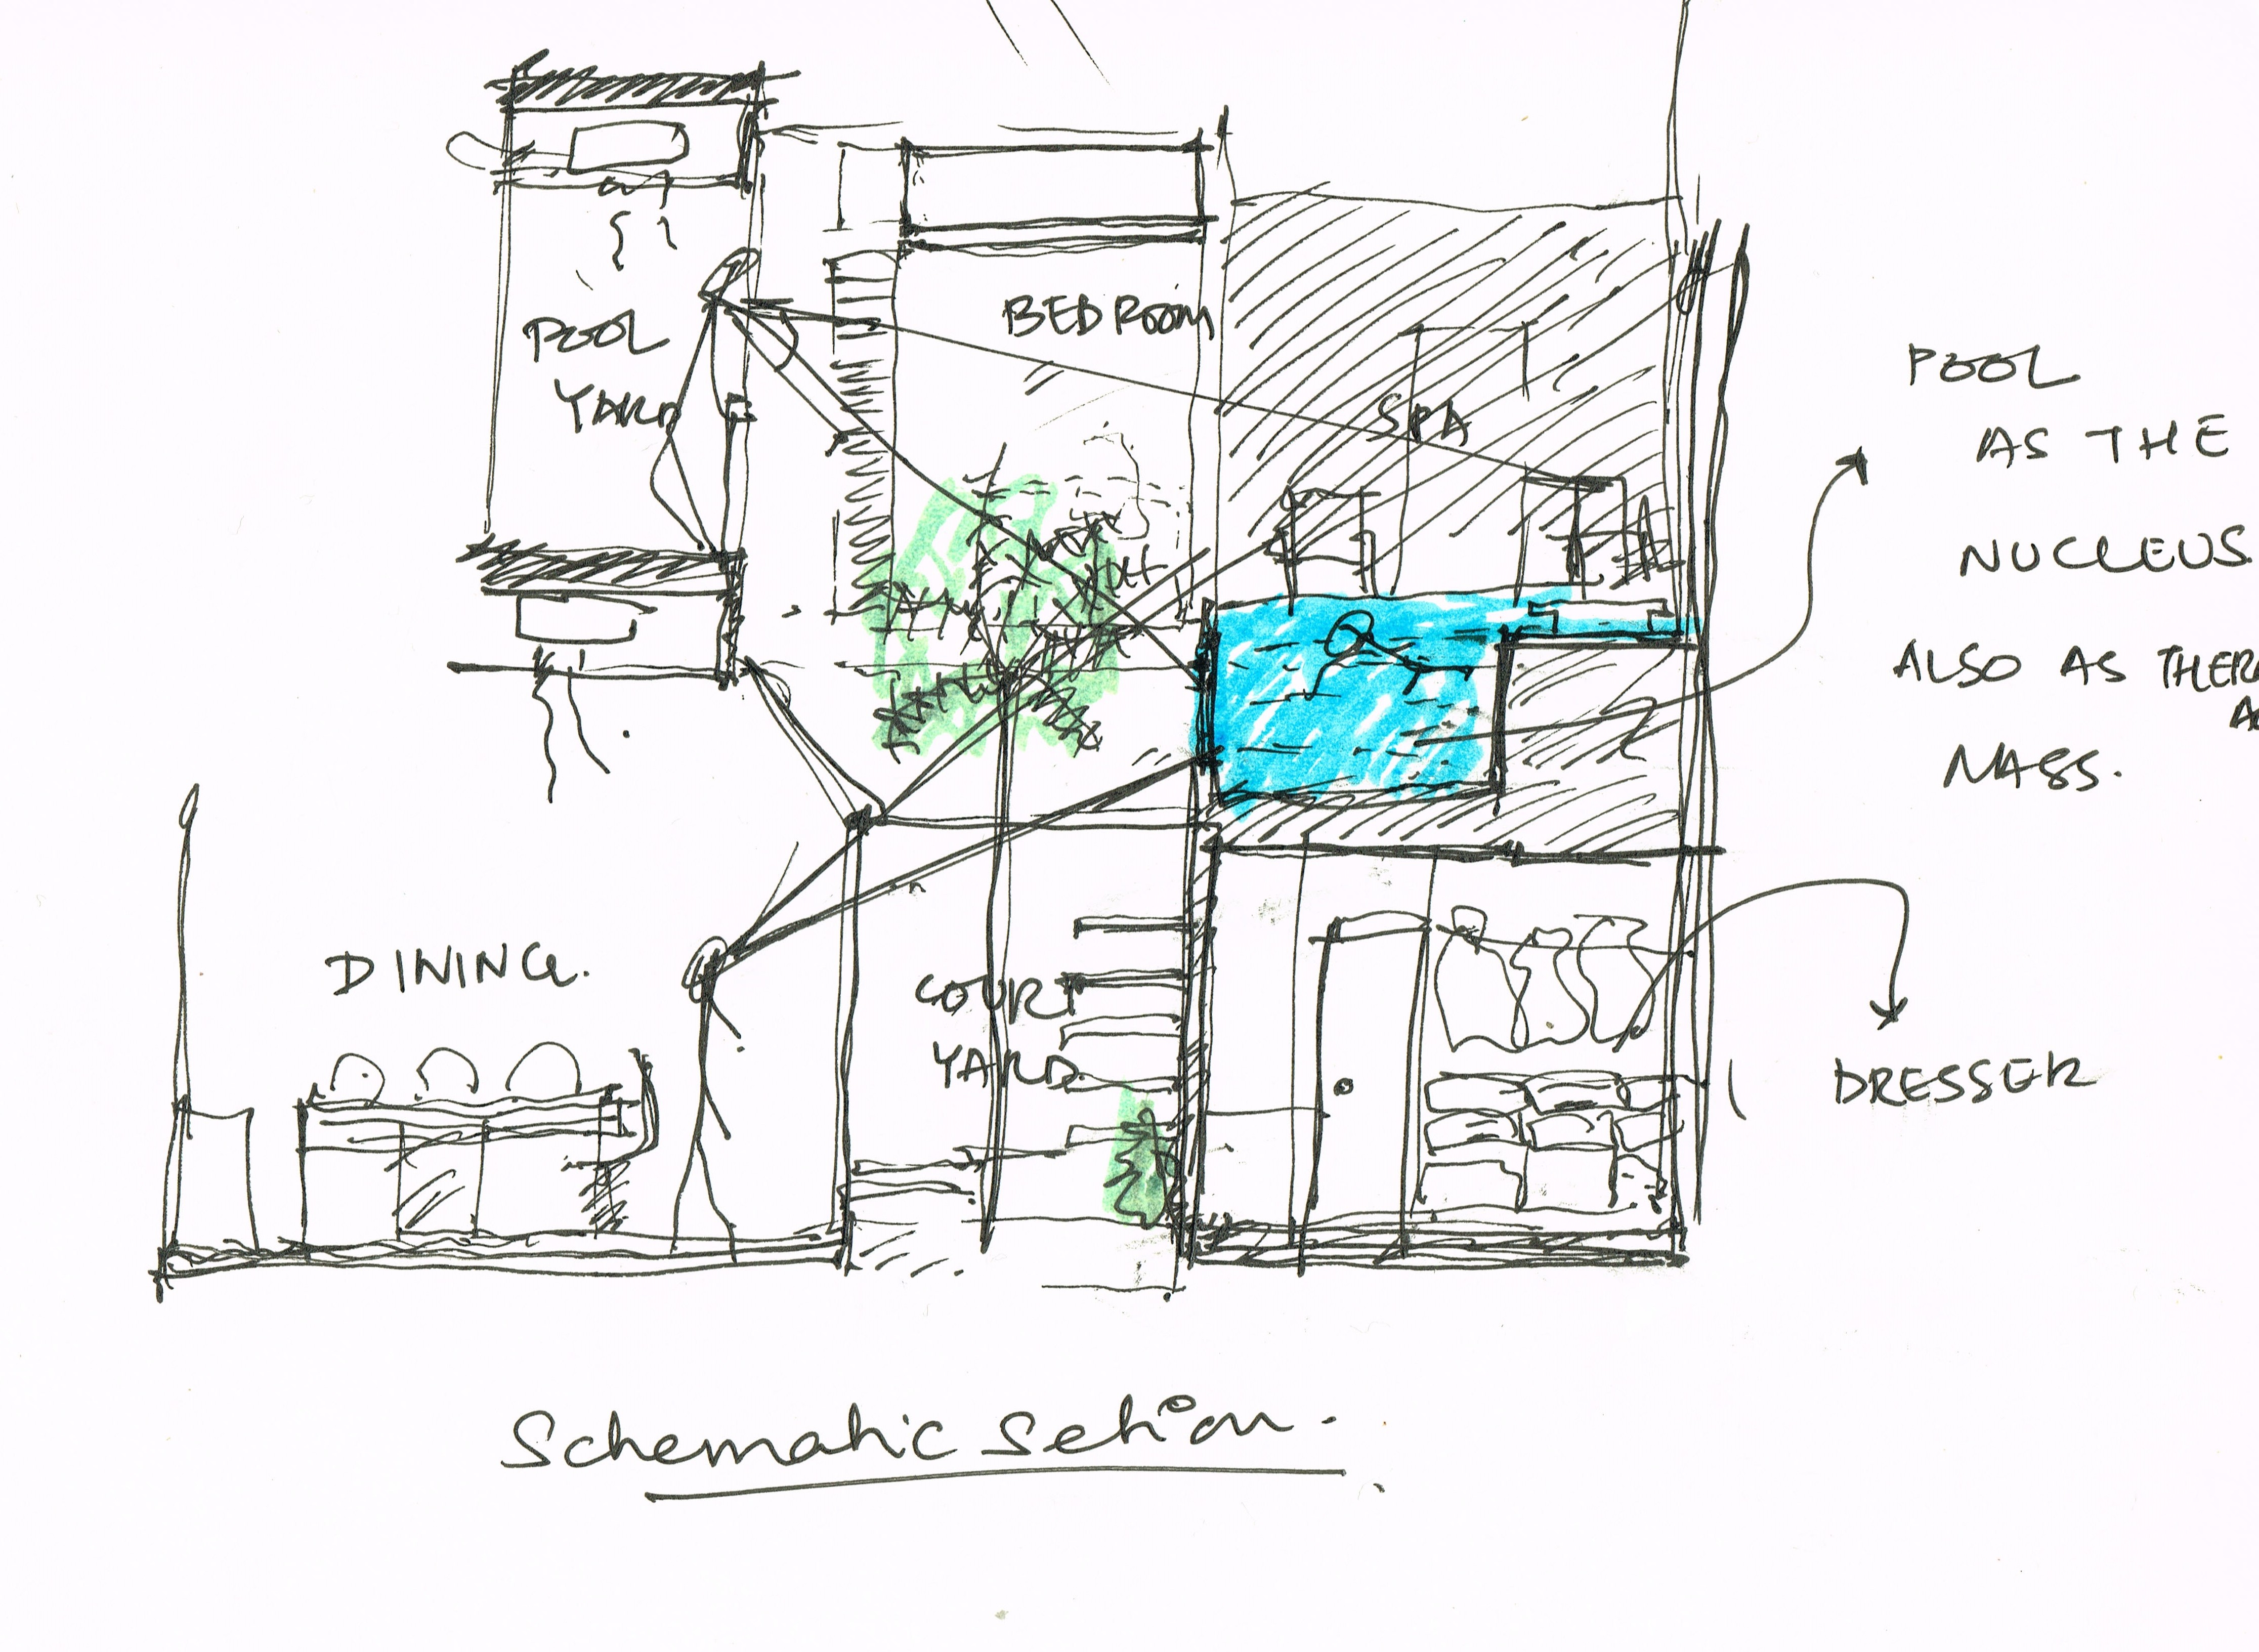 POOL
YARD
BEDROOM
SPA
POOL
AS THE
NUCLEUS
ALSO AS
MASS.
DINING.
COURT
YARD
DRESSER
Schematic Setion.